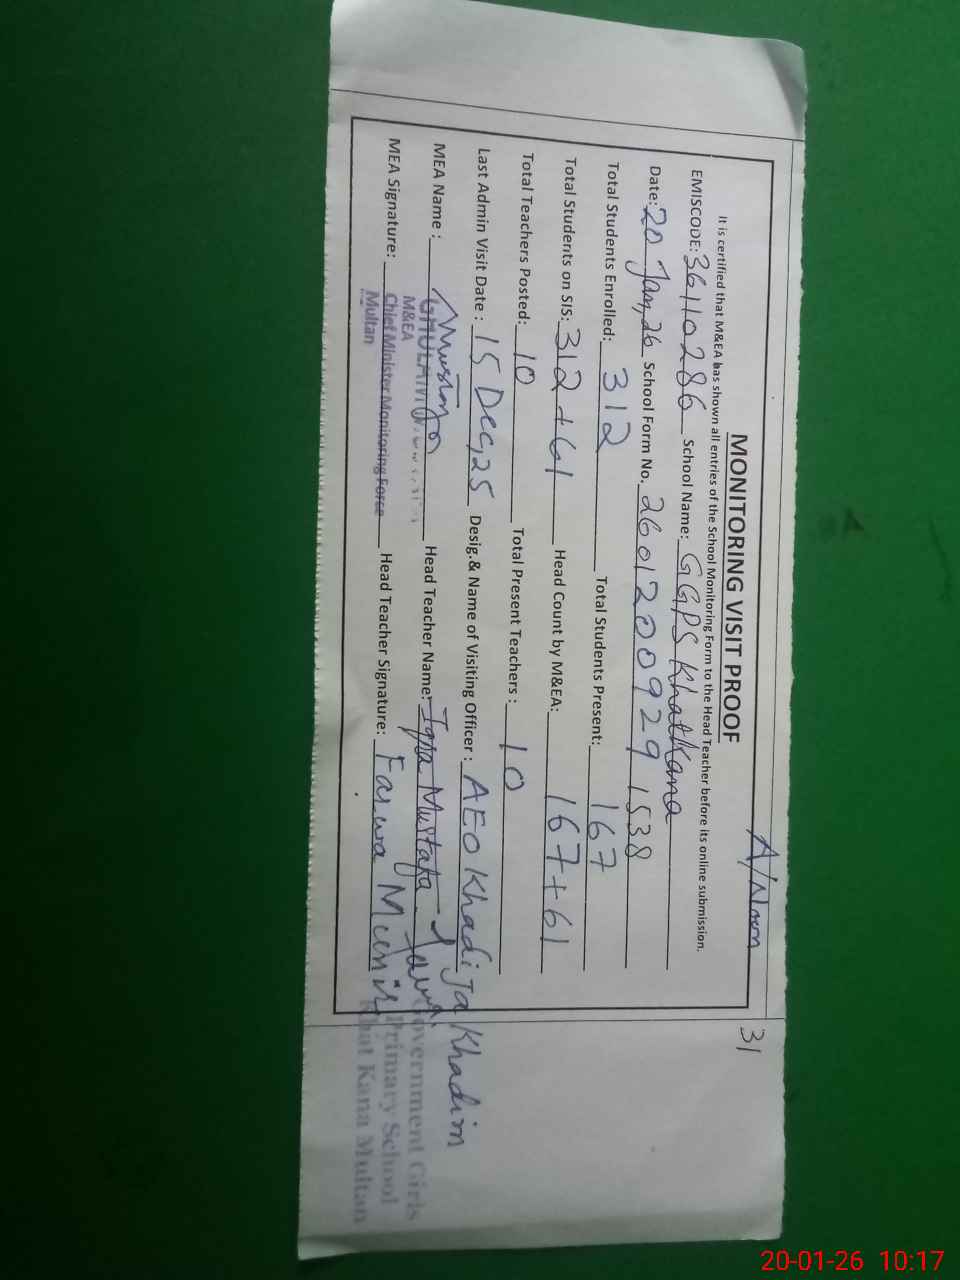 A/Noon
31
MONITORING VISIT PROOF
It is certified that M&EA has shown all entries of the School Monitoring Form to the Head Teacher before its online submission.
EMISCODE: 36110286 School Name: GGPS KhatKana
Date: 20 Jan, 26 School Form No. 26012009291538
Total Students Enrolled: 312 Total Students Present: 167
Total Students on SIS: 312 + 61 Head Count by M&EA: 167 + 61
Total Teachers Posted: 10 Total Present Teachers : 10
Last Admin Visit Date : 15 Dec, 25 Desig.& Name of Visiting Officer : AEO Khadija Khadim
MEA Name : GHULAM Head Teacher Name: Iqra Mustafa
M&EA
MEA Signature: Chief Minister Monitoring Force Head Teacher Signature: Farwa Munir
Multan
Government Girls
Primary School
Khat Kana Multan
20-01-26 10:17